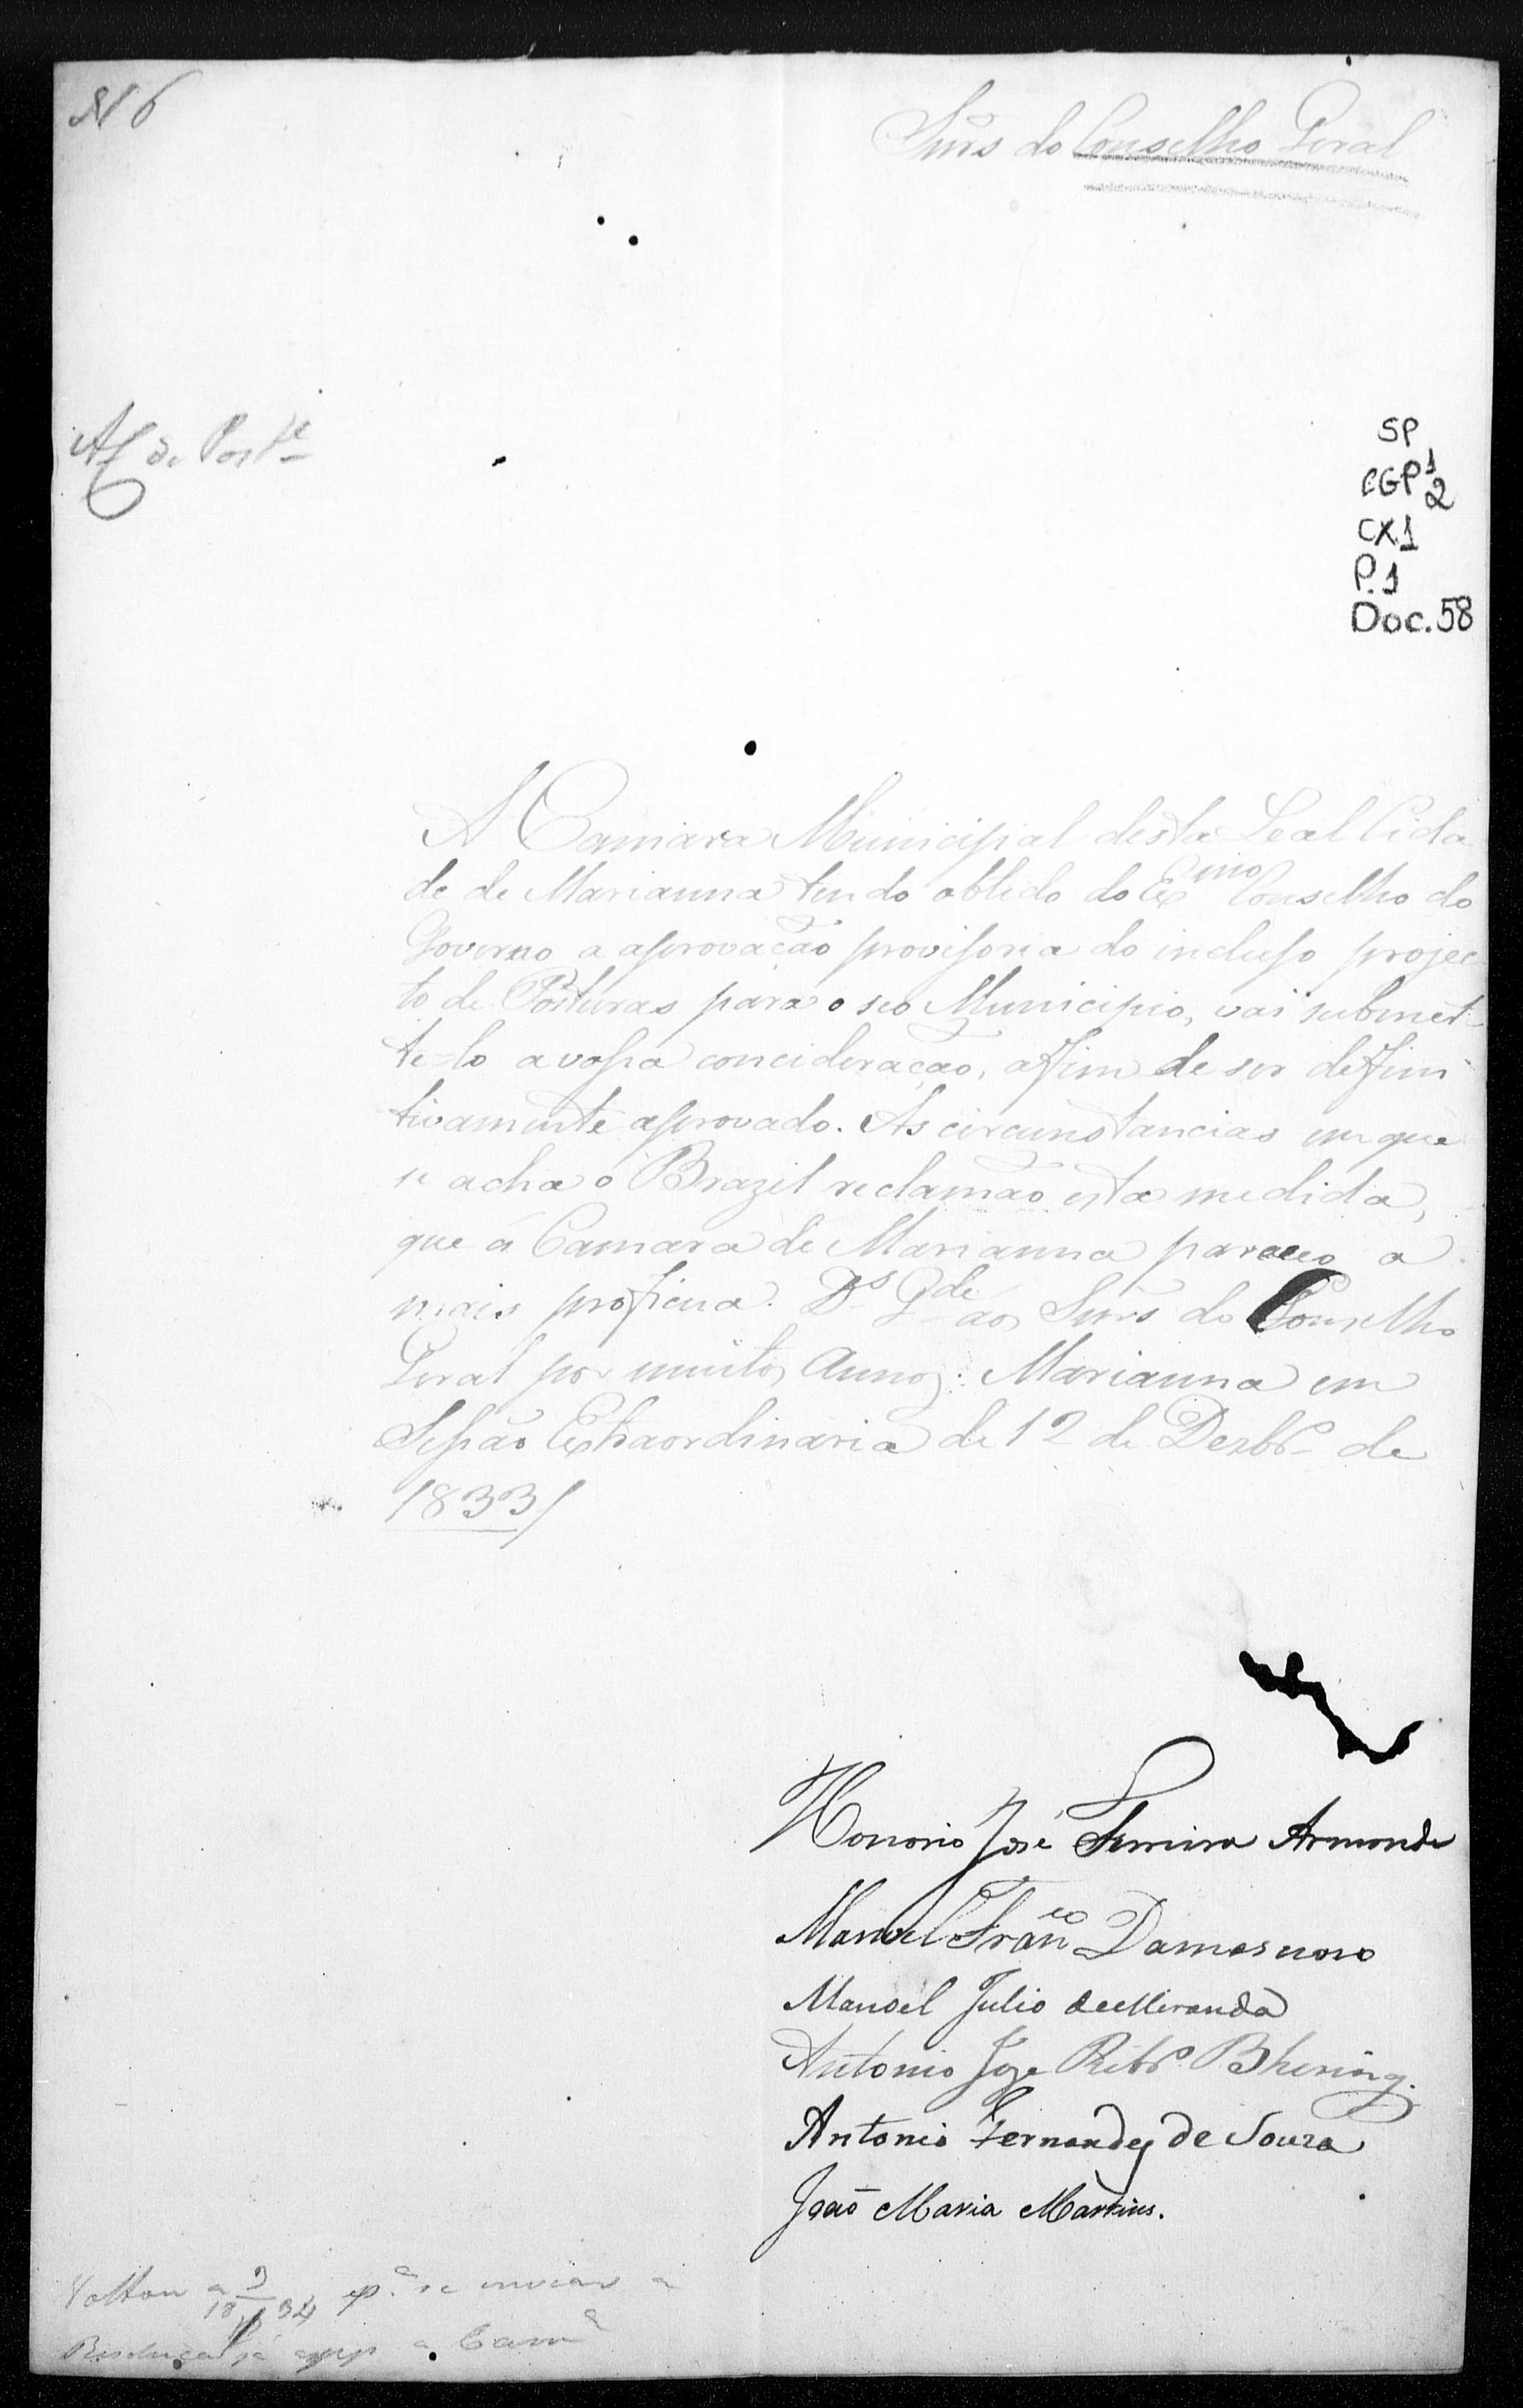 N 6
Snrs do Conselho Geral
Af de Post.e
SP
CGP 1
2
CX.1
P.1
Doc.58
A Camara Municipal desta Leal Cida
de de Marianna tendo obtido do Ex.mo Conselho do
Governo a aprovação provisoria do incluso projec
to de Posturas para o seo Municipio, vai submet
te-lo a vossa concideração, affim de ser deffini
tivamente aprovado. As circunstancias em que
se acha o Brazil reclamão esta medida,
que á Camara de Marianna pareceo a
mais proficua. D.s G.de aos Snrs do Conselho
Geral por muitos annos. Marianna em
Sessão Extraordinaria de 12 de Dezbr.o de
1833
Honorio José Ferreira Armonde
Manoel Fran.co Damasceno
Manoel Julio de Miranda
Antonio Joze Ribr.o Bhering.
Antonio Fernandes de Souza
João Maria Martins.
Voltou a 9
18 34 p.a se enviar a
Resolução a Cam.a